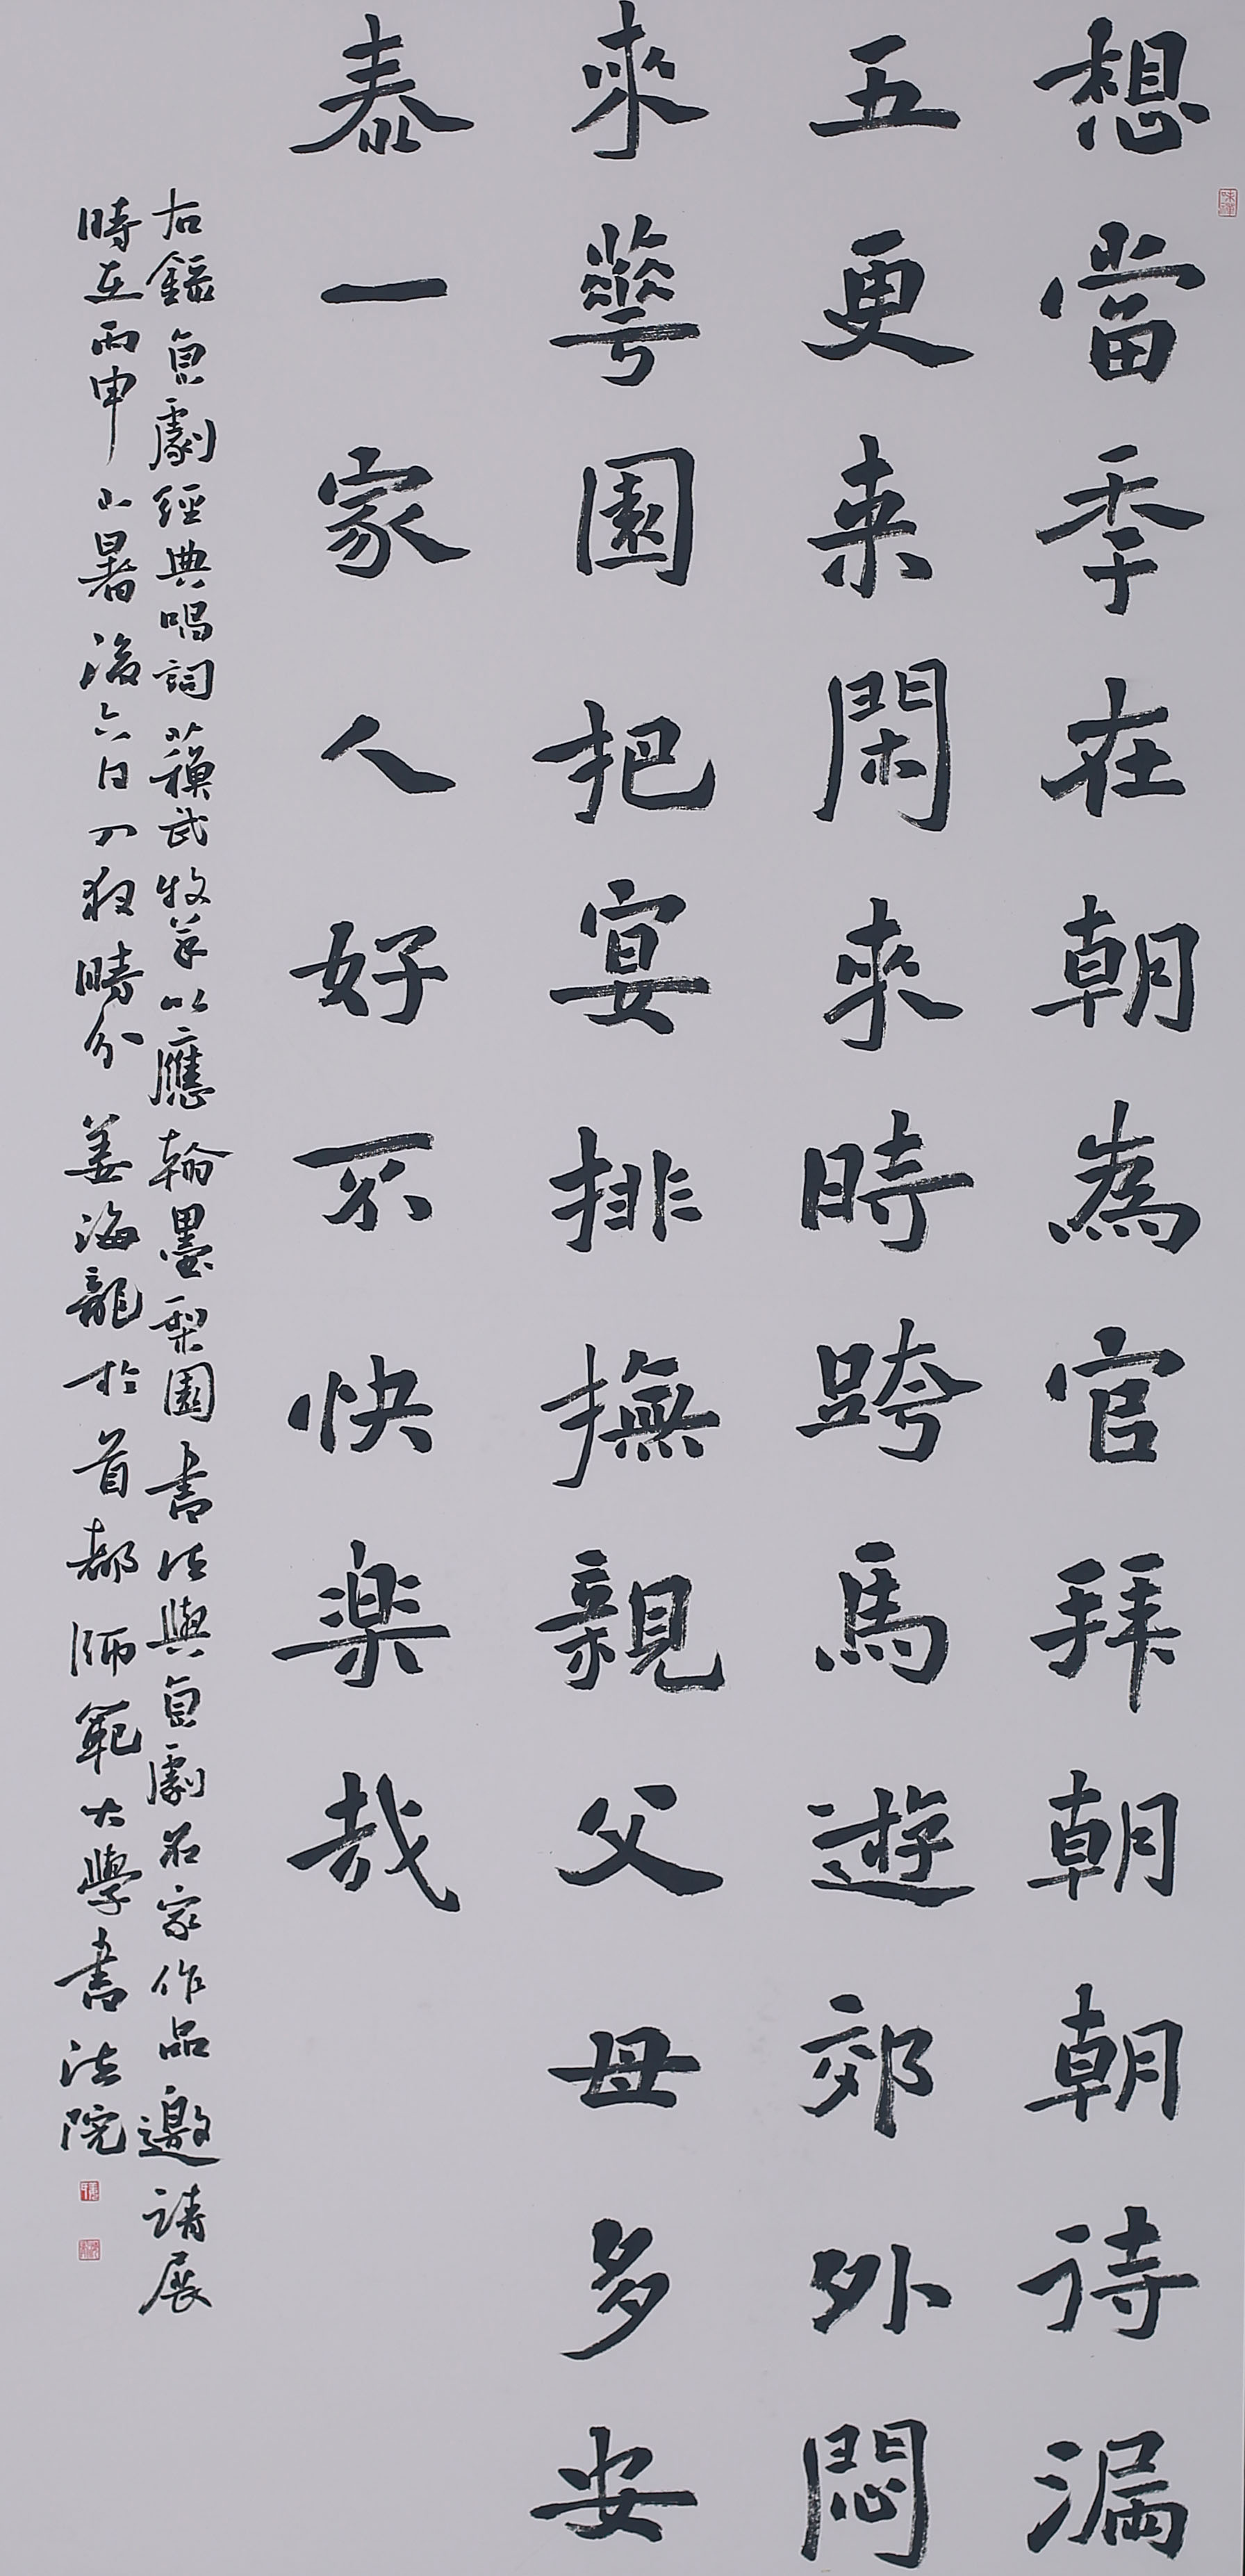 想當季在朝為官拜朝朝待漏
五更来閑來時跨馬遊郊外悶
來華園把宴排撫親父母多安
泰一家人好不快楽哉
右錄貞劇經典唱詞蘇武牧羊以應翰墨梨園書法與貞劇名家作品邀請展
時在丙申小暑後六日入夜時分姜海龍於首都師範大學書法院